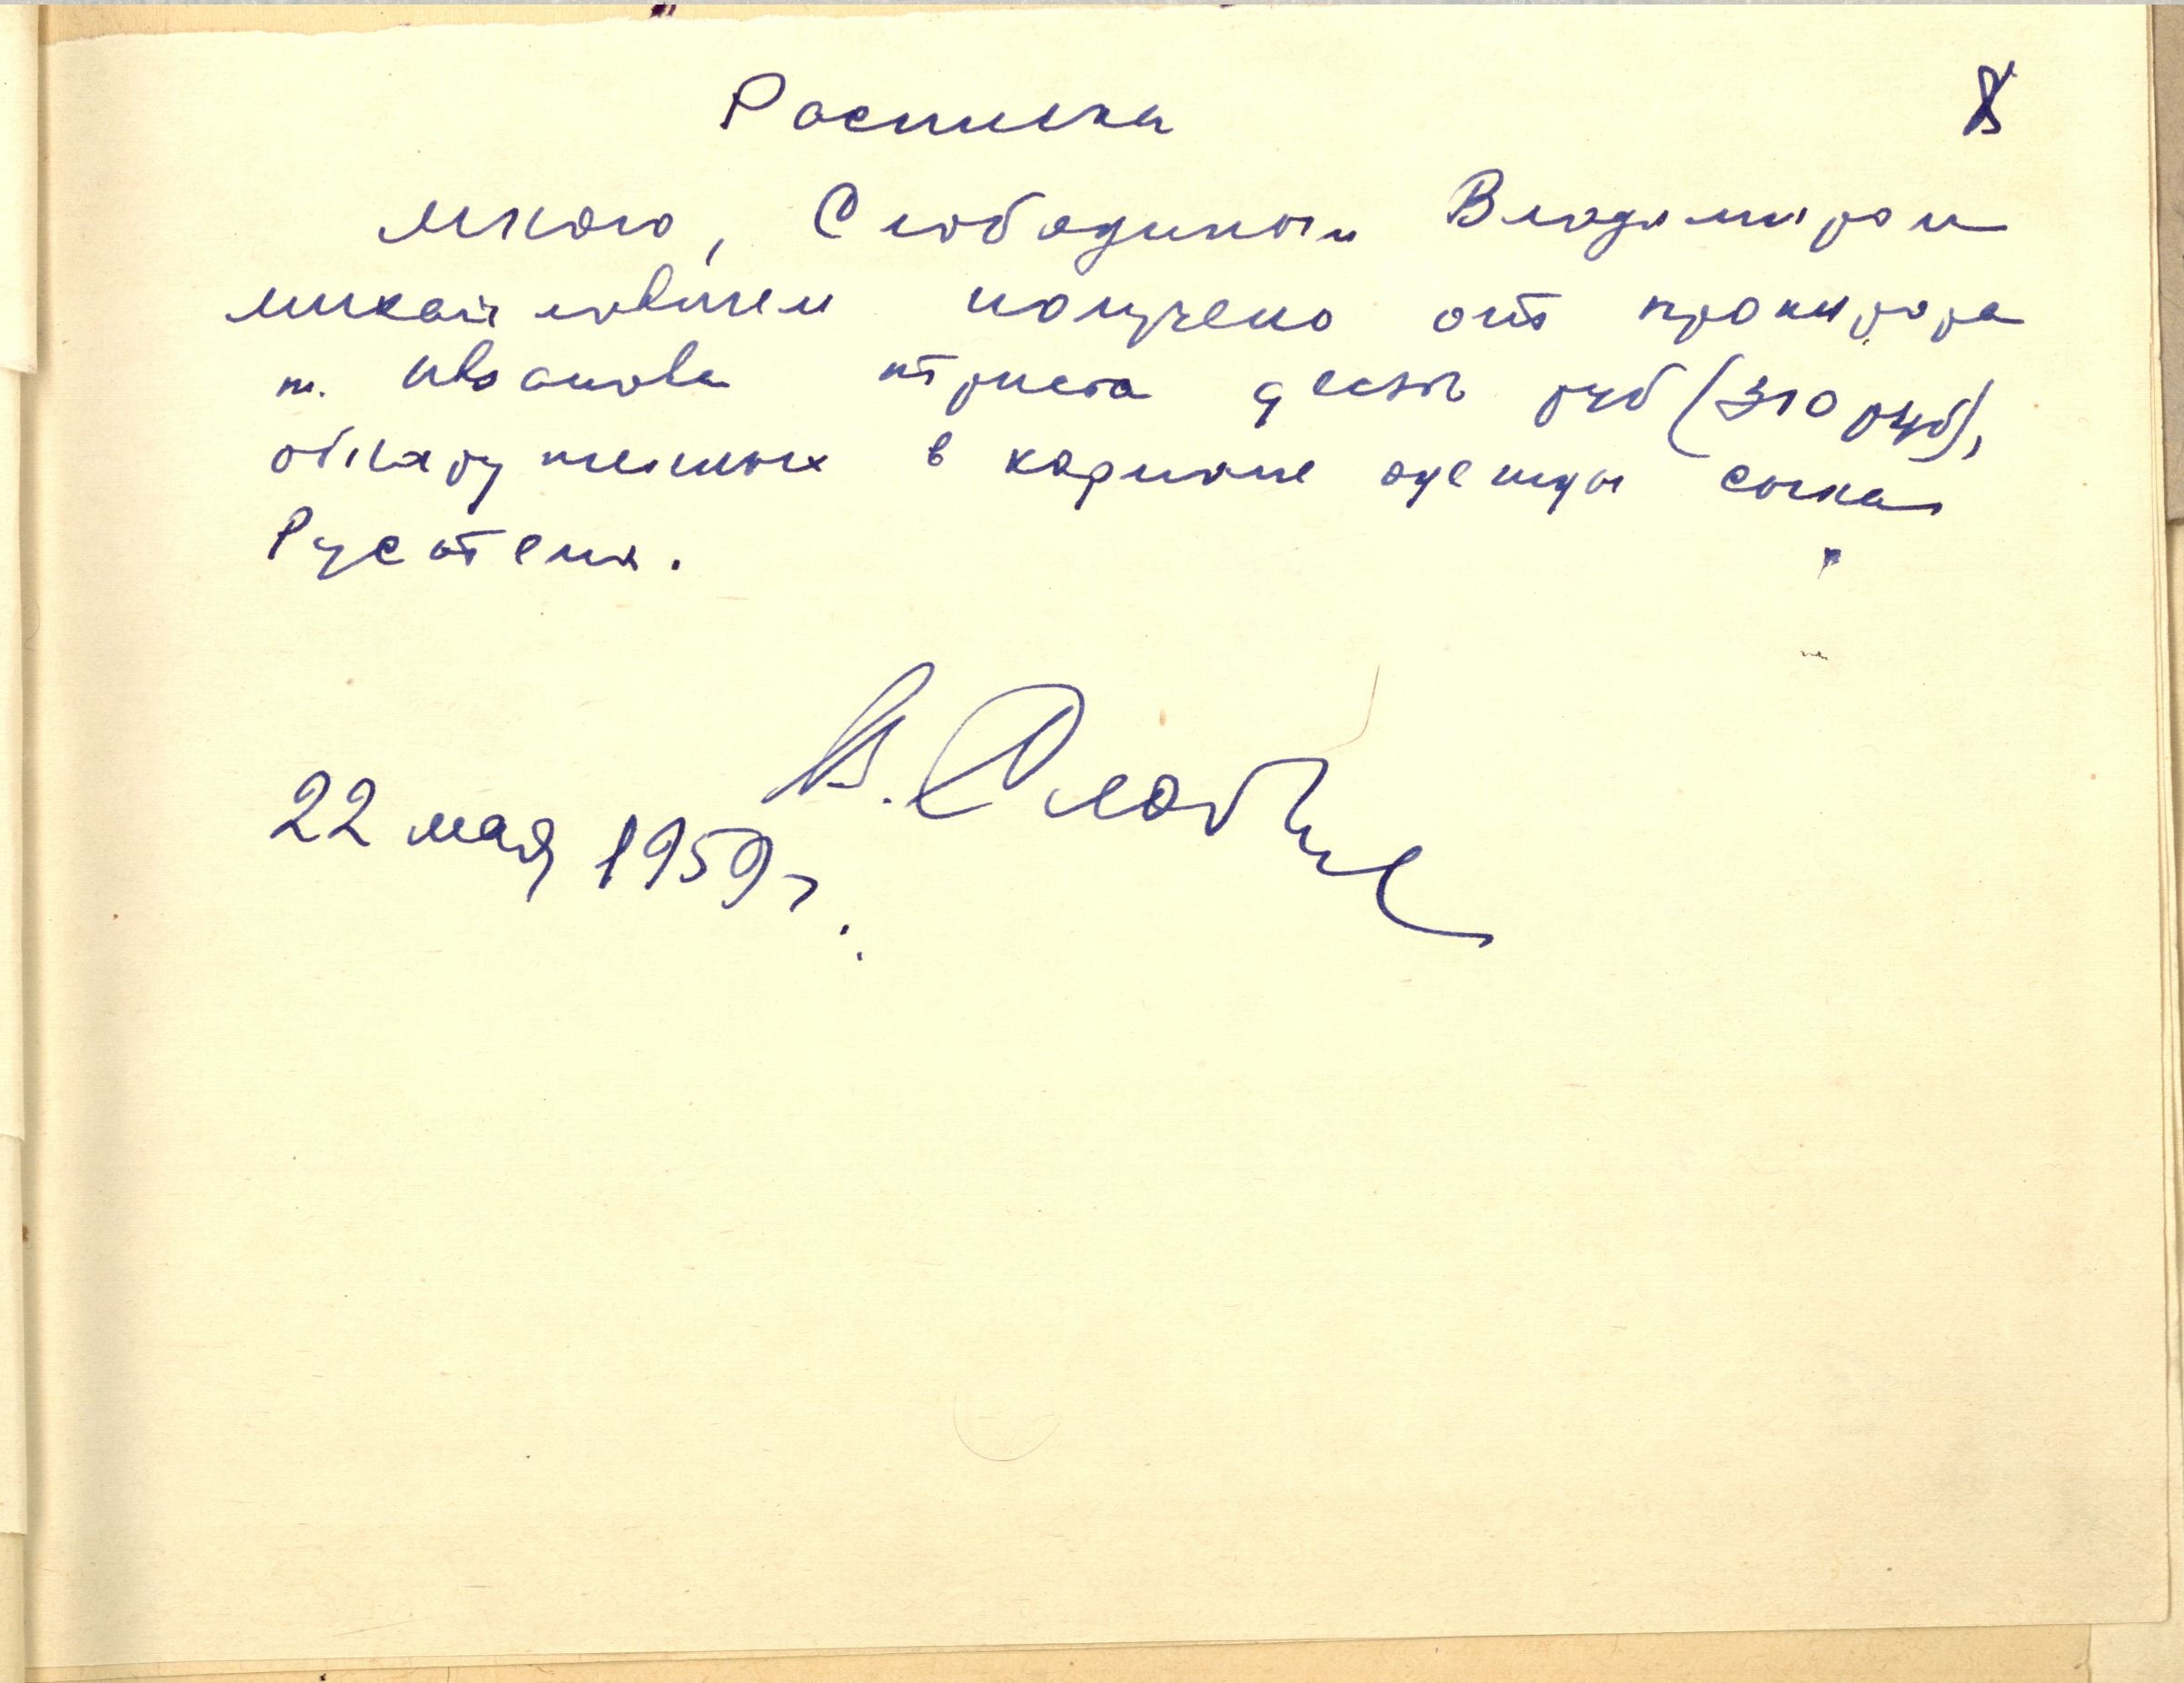 Расписка
8
Мною, Слободиным Владимиром
Михайловичем получено от прокурора
т. Иванова триста десять руб (310 руб),
обнаруженных в кармане одежды сына
Рустема.
В. Слободин
22 мая 1959 г.